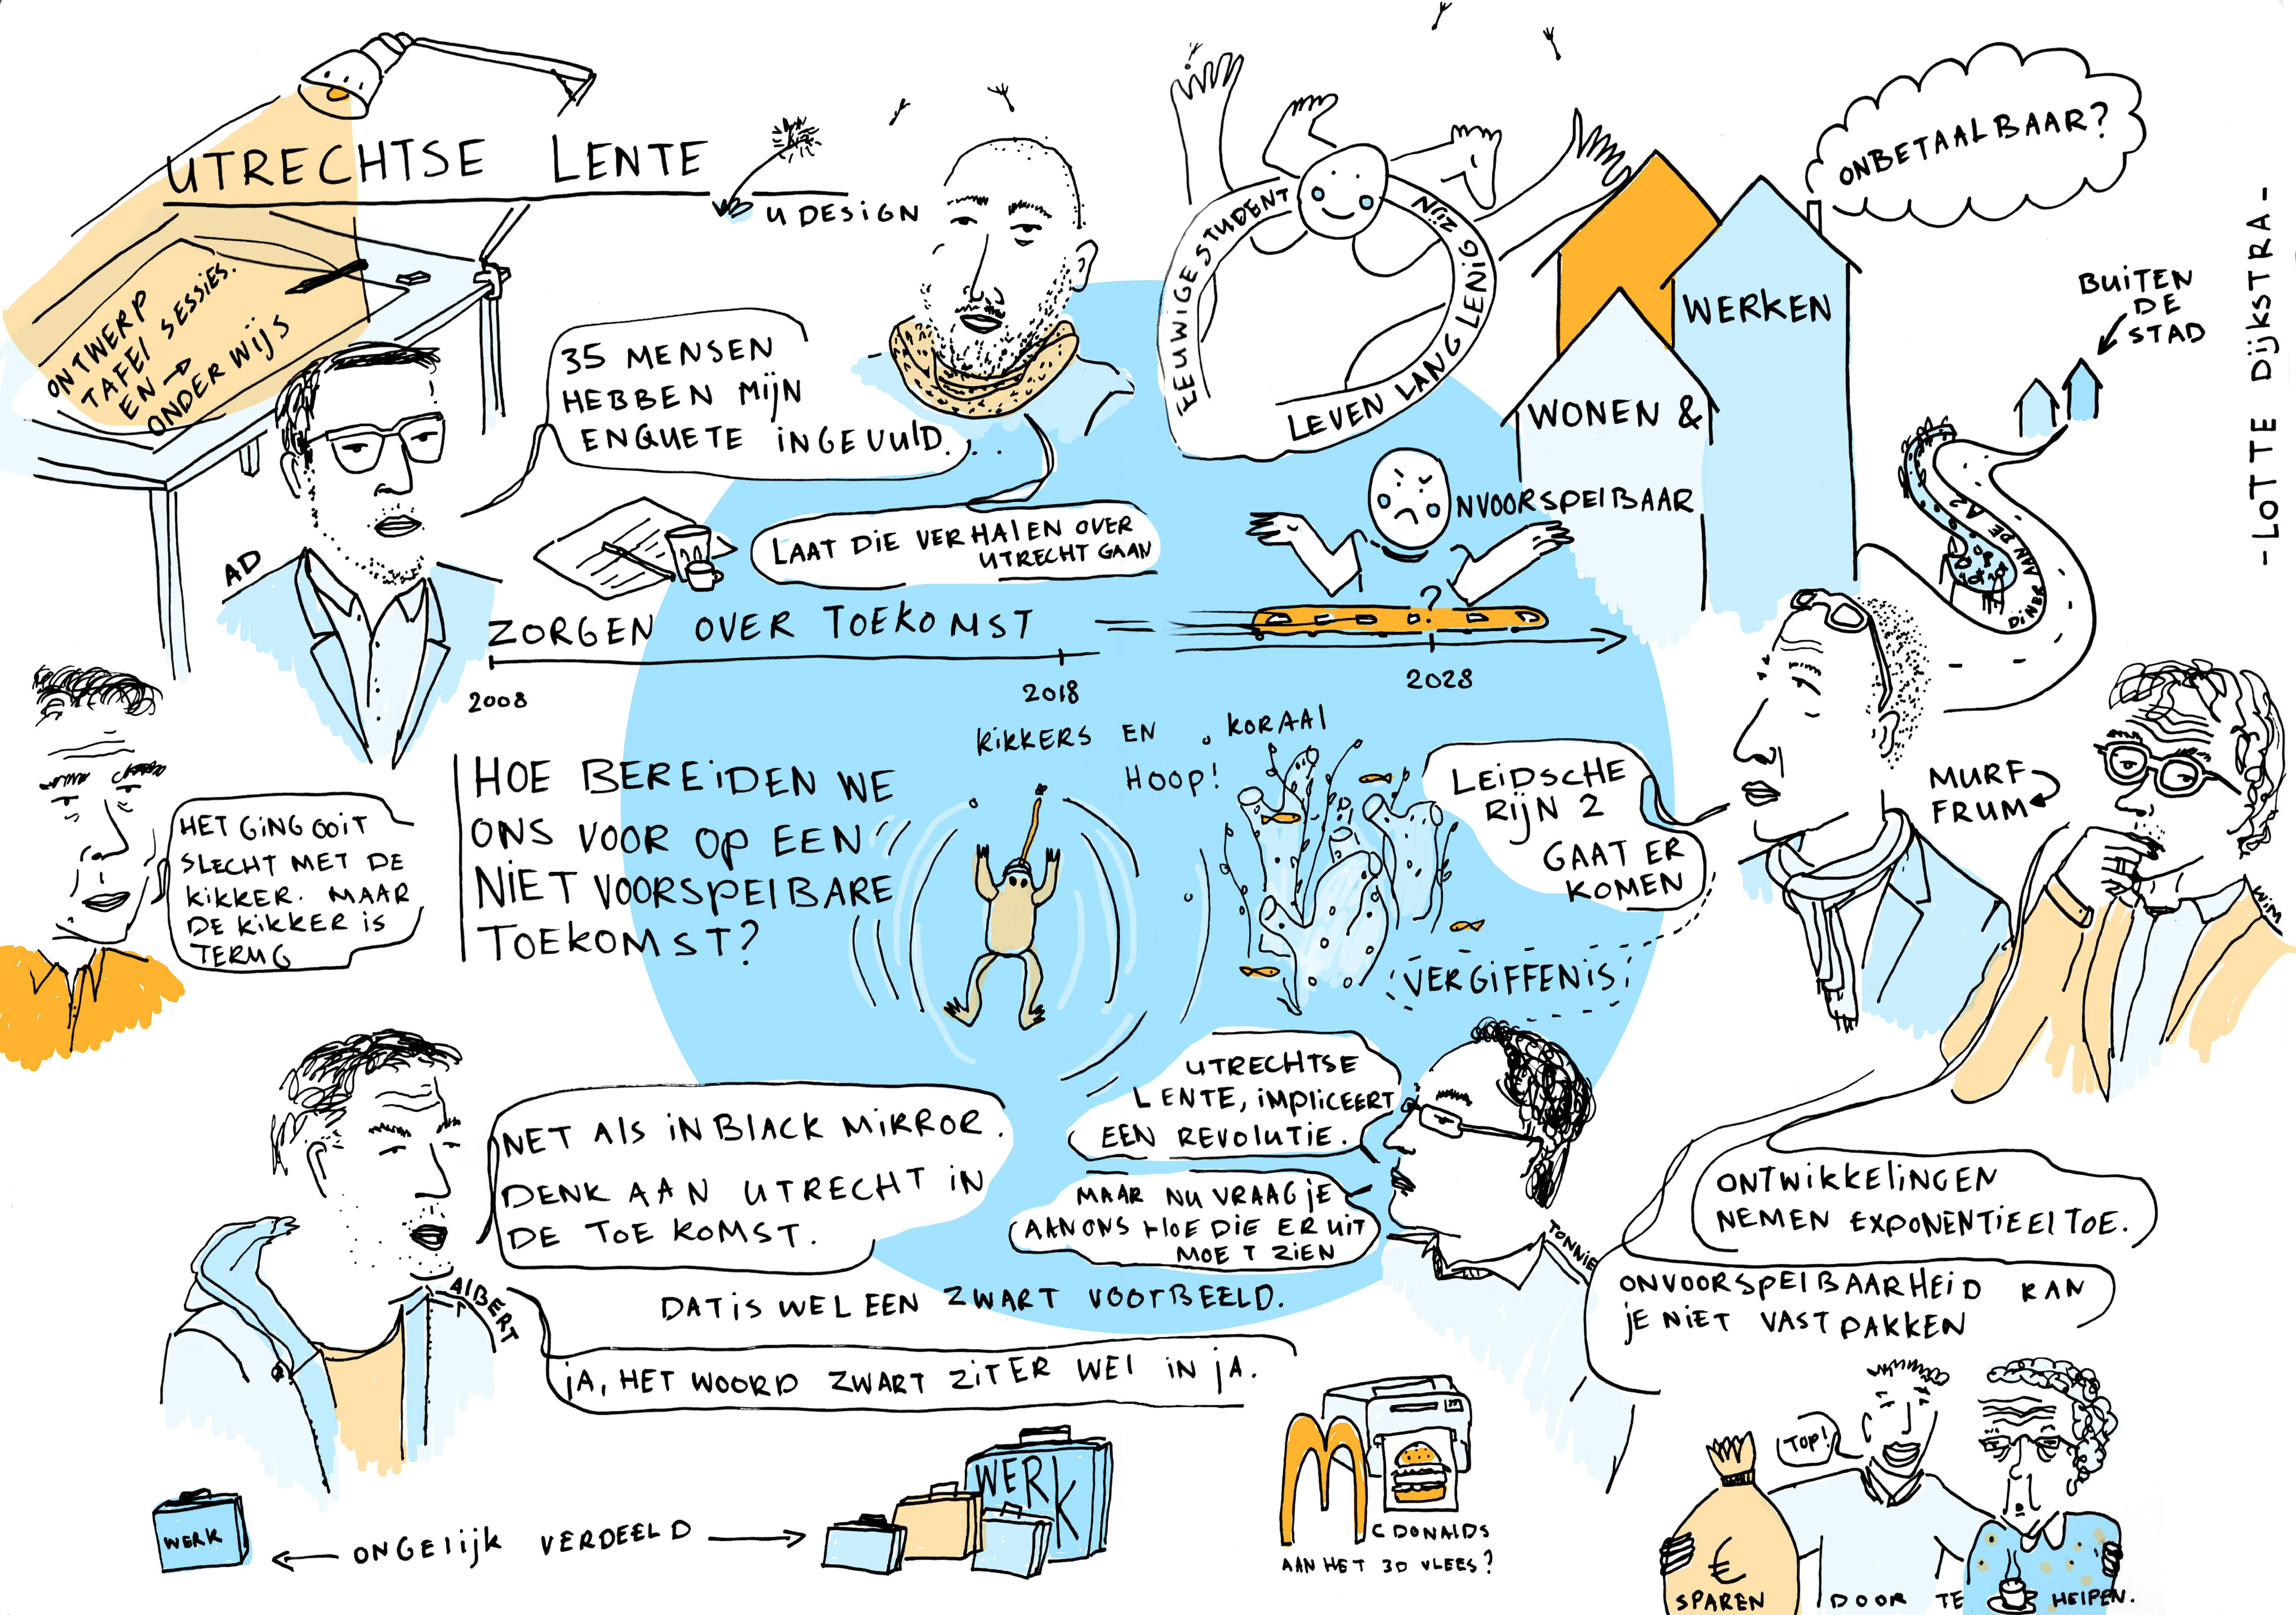 UTRECHTSE LENTE
U DESIGN
ONTWERP
TAFEL SESSIES.
EN →
ONDERWIJS
AD
35 MENSEN
HEBBEN MIJN
ENQUETE INGEVULD...
LAAT DIE VERHALEN OVER
UTRECHT GAAN
EEUWIGE STUDENT
LEVEN LANG LENIG ZIJN
ONBETAALBAAR?
WERKEN
WONEN &
BUITEN
DE
STAD
DINER AAN DE A2
- LOTTE DIJKSTRA -
ONVOORSPELBAAR
ZORGEN OVER TOEKOMST
?
2008
2018
2028
HET GING OOIT
SLECHT MET DE
KIKKER. MAAR
DE KIKKER IS
TERUG
HOE BEREIDEN WE
ONS VOOR OP EEN
NIET VOORSPELBARE
TOEKOMST?
KIKKERS EN KORAAL
HOOP!
LEIDSCHE
RIJN 2
GAAT ER
KOMEN
VERGIFFENIS
MURF
FRUM
WIM
NET ALS IN BLACK MIRROR.
DENK AAN UTRECHT IN
DE TOEKOMST.
ALBERT
UTRECHTSE
LENTE, IMPLICEERT
EEN REVOLUTIE.
MAAR NU VRAAG JE
AAN ONS HOE DIE ER UIT
MOET ZIEN
TONNIE
DAT IS WEL EEN ZWART VOORBEELD.
JA, HET WOORD ZWART ZIT ER WEL IN JA.
ONTWIKKELINGEN
NEMEN EXPONENTIEEL TOE.
ONVOORSPELBAARHEID KAN
JE NIET VAST PAKKEN
WERK
← ONGELIJK VERDEELD →
WERK
MCDONALDS
AAN HET 3D VLEES?
TOP!
€
SPAREN DOOR TE HELPEN.